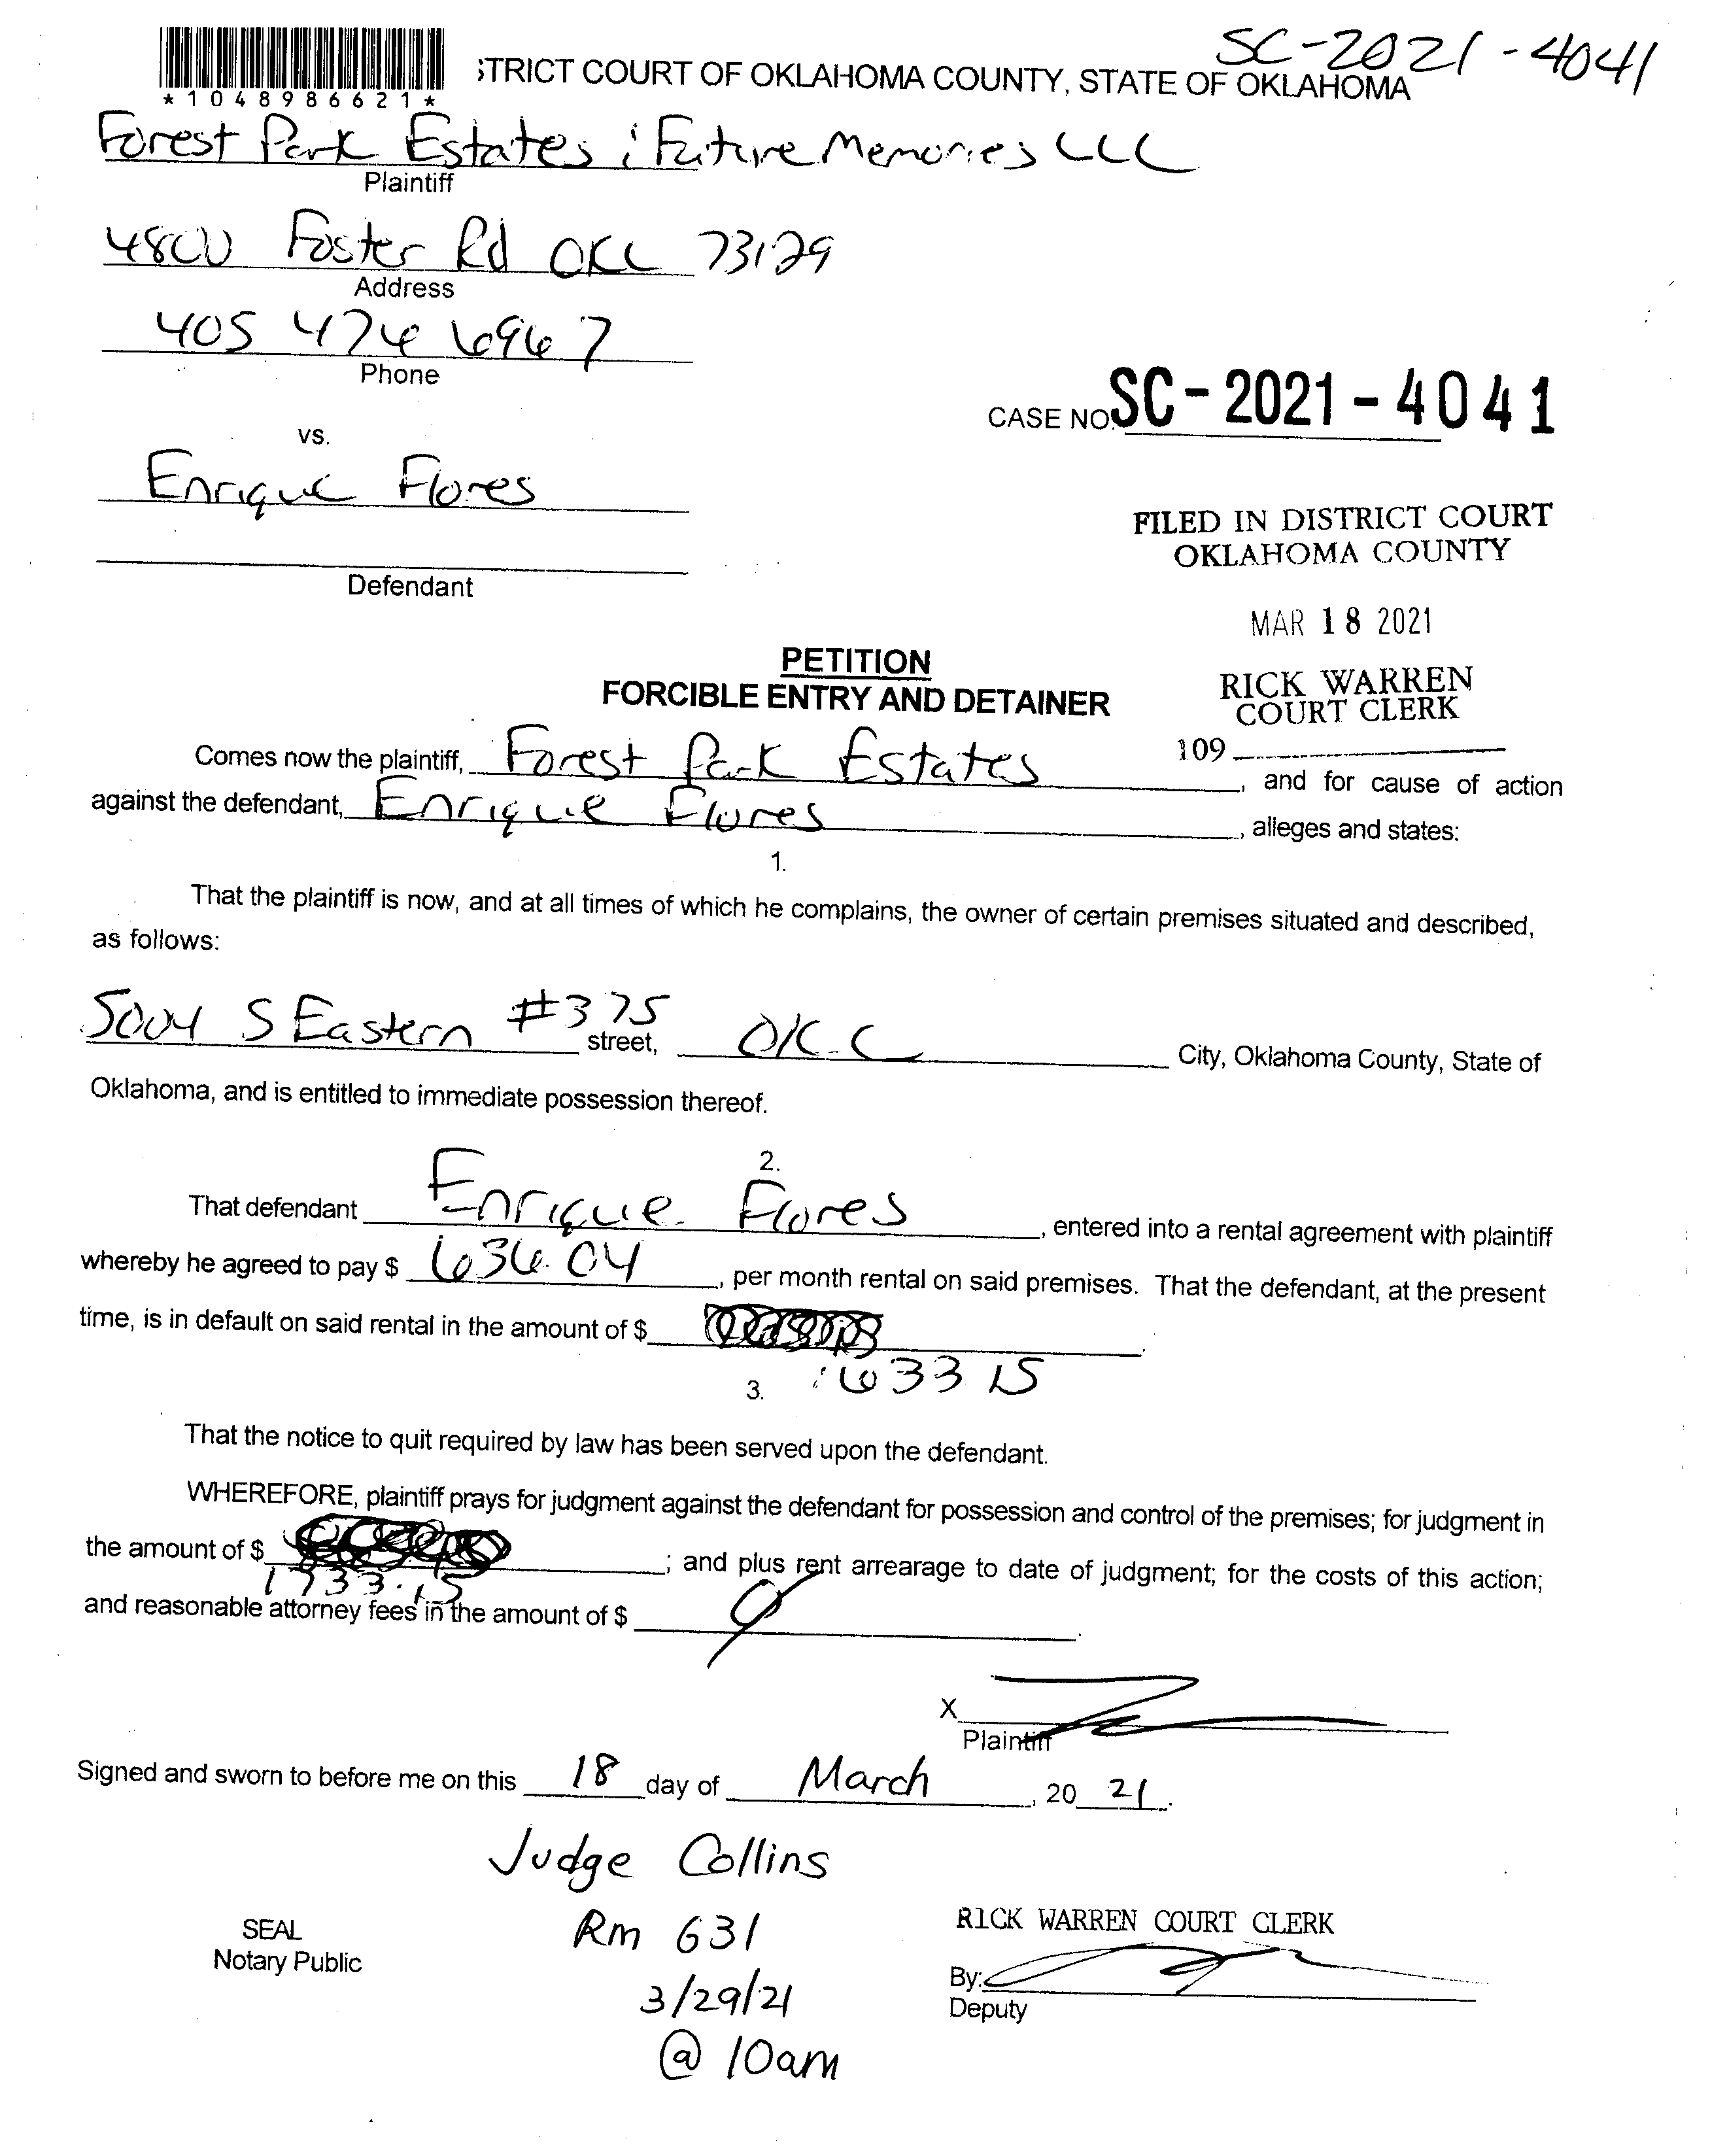 SC-2021-4041
STRICT COURT OF OKLAHOMA COUNTY, STATE OF OKLAHOMA
*1048986621*
Forest Park Estates ; Future Memories LLC
Plaintiff
4800 Foster Rd OKC 73129
Address
405 474 6967
Phone
CASE NO. SC-2021-4041
vs.
Enrique Flores
Defendant
FILED IN DISTRICT COURT
OKLAHOMA COUNTY
MAR 18 2021
RICK WARREN
COURT CLERK
109
PETITION
FORCIBLE ENTRY AND DETAINER
Comes now the plaintiff, Forest Park Estates, and for cause of action
against the defendant, Enrique Flores, alleges and states:
1.
That the plaintiff is now, and at all times of which he complains, the owner of certain premises situated and described,
as follows:
5004 S Eastern #375 street, OKC City, Oklahoma County, State of
Oklahoma, and is entitled to immediate possession thereof.
2.
That defendant Enrique Flores, entered into a rental agreement with plaintiff
whereby he agreed to pay $ 636.04, per month rental on said premises. That the defendant, at the present
time, is in default on said rental in the amount of $
633 15
3.
That the notice to quit required by law has been served upon the defendant.
WHEREFORE, plaintiff prays for judgment against the defendant for possession and control of the premises; for judgment in
the amount of $ ; and plus rent arrearage to date of judgment; for the costs of this action;
1733.15
and reasonable attorney fees in the amount of $
X
Plaintiff
Signed and sworn to before me on this 18 day of March, 20 21.
Judge Collins
Rm 631
3/29/21
@ 10am
SEAL
Notary Public
RICK WARREN COURT CLERK
By:
Deputy